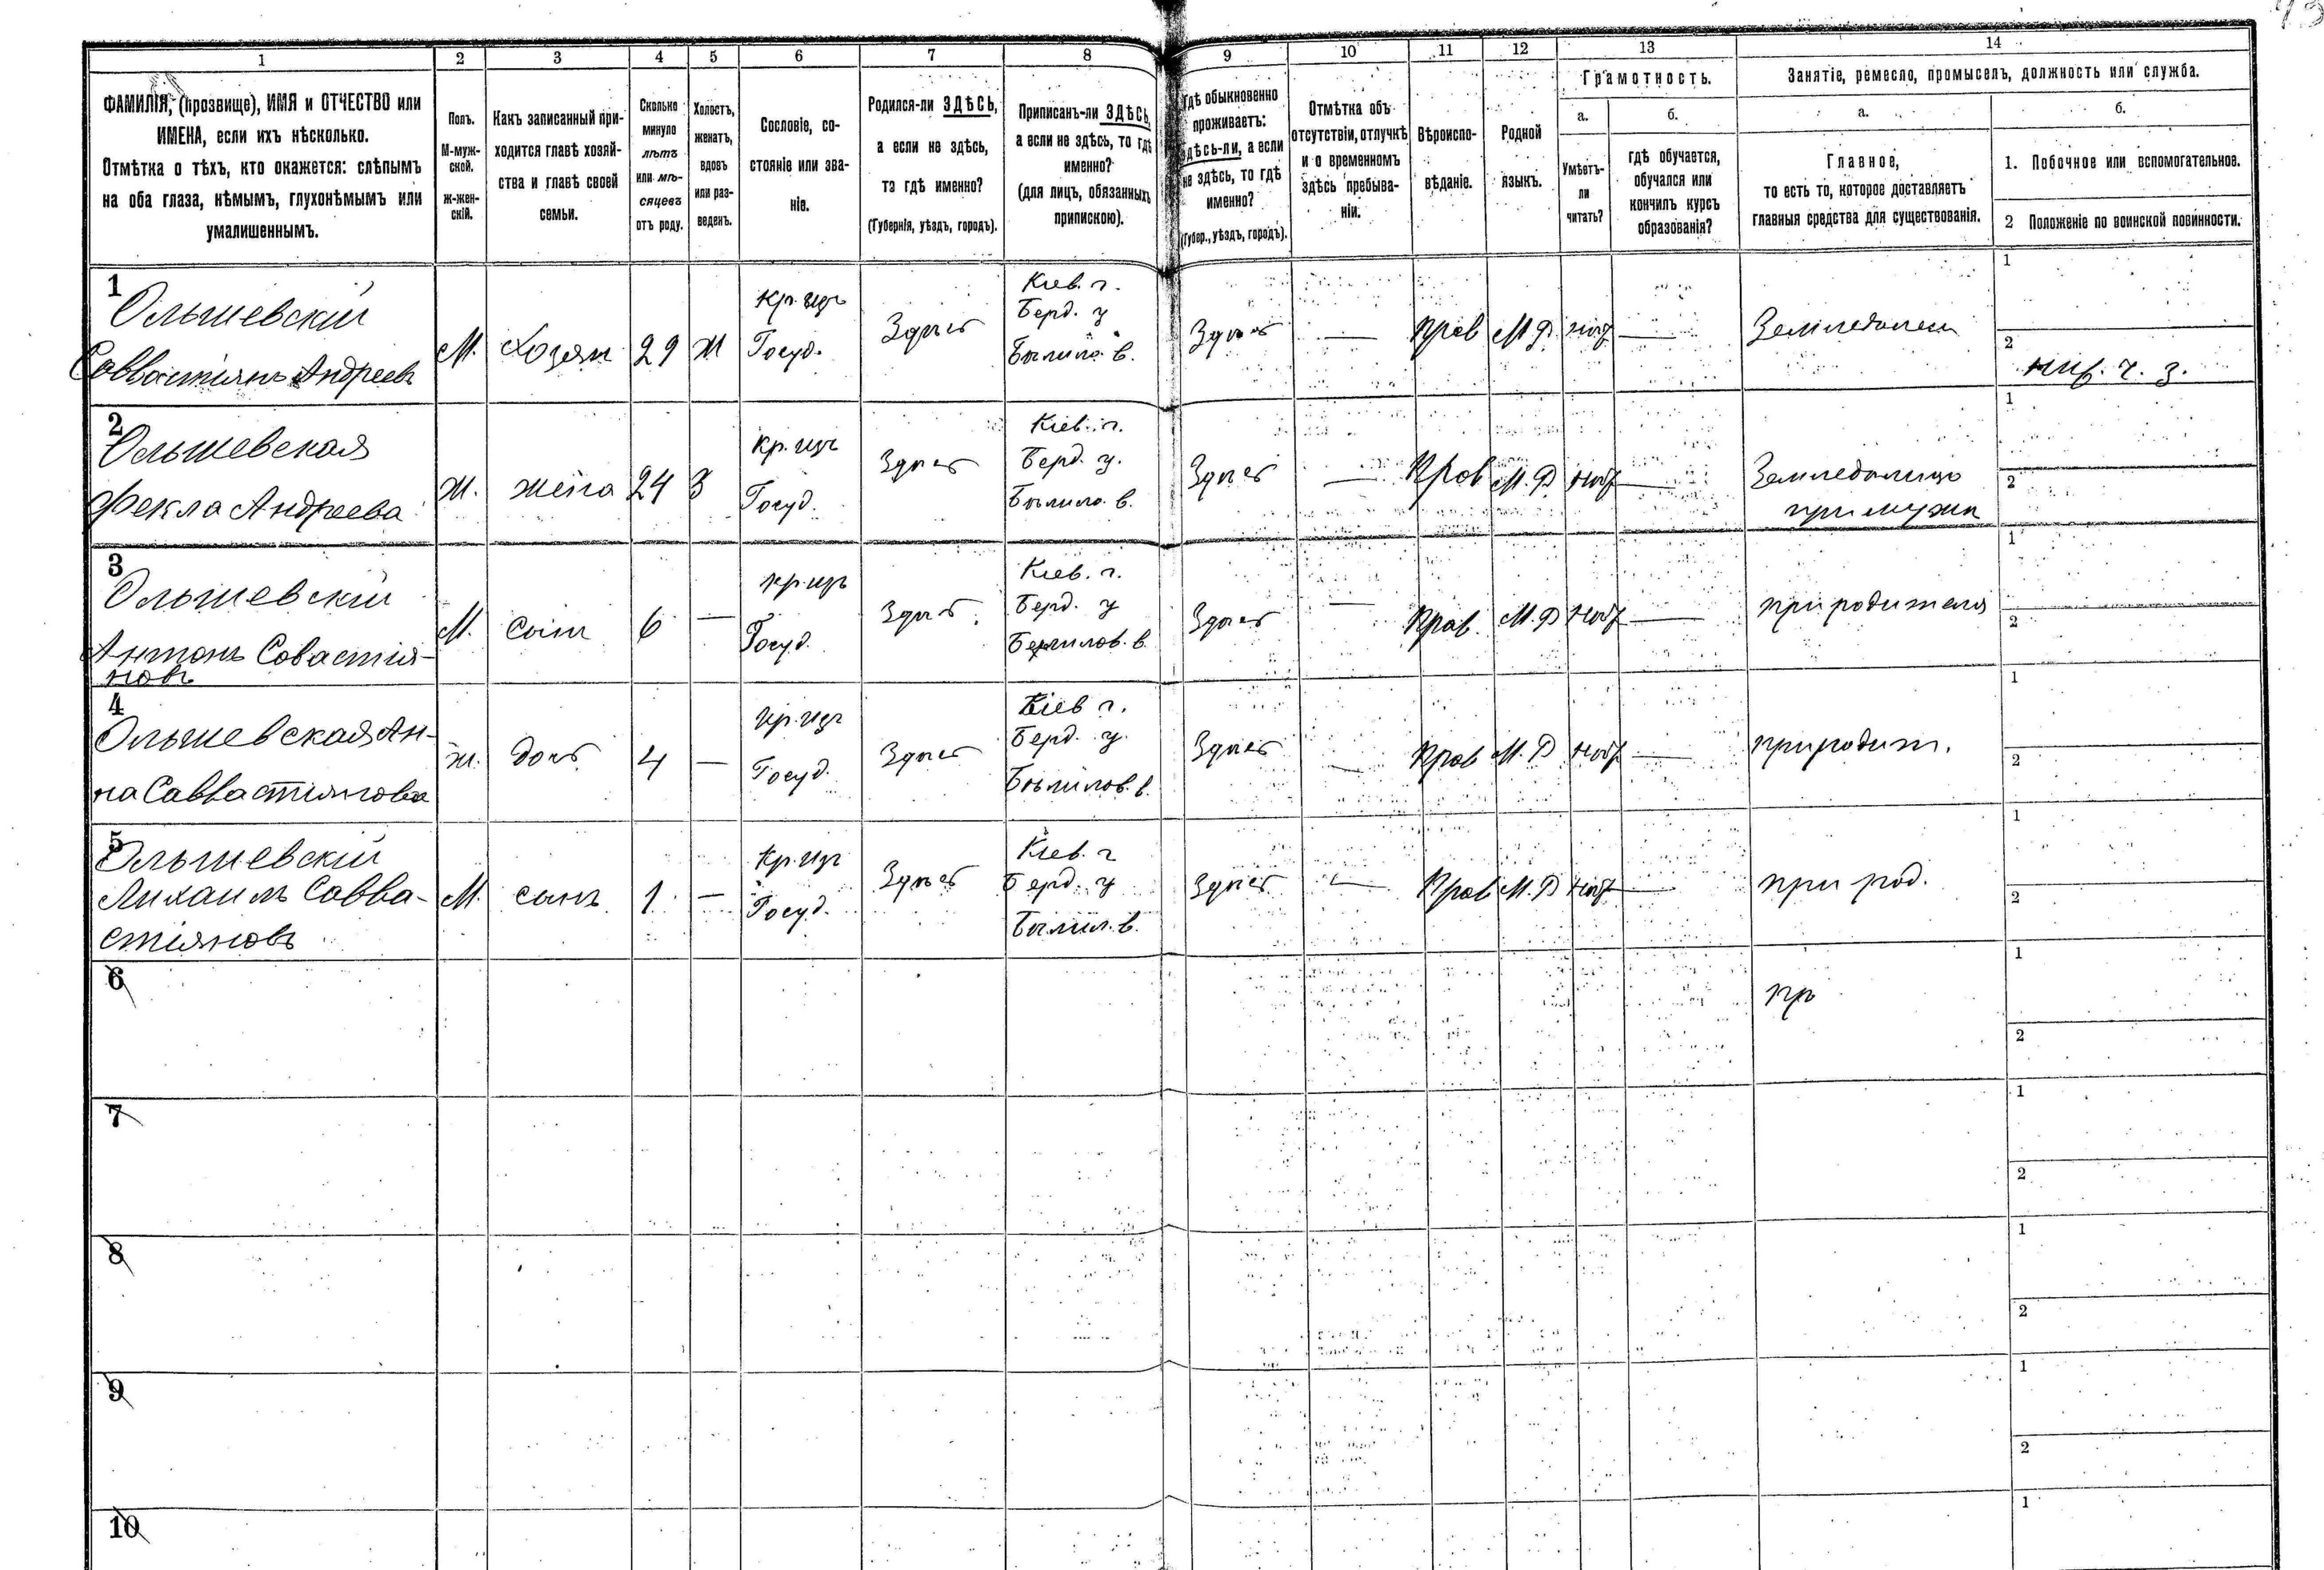 1 2 3 4 5 6 7 8 9 10 11 12 13 14
ФАМИЛІЯ, (прозвище), ИМЯ и ОТЧЕСТВО или
ИМЕНА, если ихъ нѣсколько.
Отмѣтка о тѣхъ, кто окажется: слѣпымъ
на оба глаза, нѣмымъ, глухонѣмымъ или
умалишеннымъ.
Полъ.
М-муж-
ской.
ж-жен-
скій.
Какъ записанный при-
ходится главѣ хозяй-
ства и главѣ своей
семьи.
Сколько
минуло
лѣтъ
или мѣ-
сяцевъ
отъ роду.
Холостъ,
женатъ,
вдовъ
или раз-
веденъ.
Сословіе, со-
стояніе или зва-
ніе.
Родился-ли ЗДѢСЬ,
а если не здѣсь,
то гдѣ именно?
(Губернія, уѣздъ, городъ).
Приписанъ-ли ЗДѢСЬ,
а если не здѣсь, то гдѣ
именно?
(для лицъ, обязанныхъ
припискою).
Гдѣ обыкновенно
проживаетъ:
здѣсь-ли, а если
не здѣсь, то гдѣ
именно?
(Губер., уѣздъ, городъ).
Отмѣтка объ
отсутствіи, отлучкѣ
и о временномъ
здѣсь пребыва-
ніи.
Вѣроиспо-
вѣданіе.
Родной
языкъ.
Грамотность.
а.
Умѣетъ-
ли
читать?
б.
гдѣ обучается,
обучался или
кончилъ курсъ
образованія?
Занятіе, ремесло, промыселъ, должность или служба.
а.
Главное,
то есть то, которое доставляетъ
главныя средства для существованія.
б.
1. Побочное или вспомогательное.
2 Положеніе по воинской повинности.
1
Ольшевскій
Саввастіянъ Андреевъ
М.
Хозяин
29
Ж
Кр. изъ
Госуд.
Здѣсь
Кіев. г.
Берд. у
Бѣлило. в.
Здѣсь
—
Прав
М.Р.
нѣт
—
Земледелец
1
2
2
Ольшевская
Фекла Андреева
Ж.
жена
24
З
Кр. изъ
Госуд.
Здѣсь
Кіев. г.
Берд. у.
Бѣлило. в.
Здѣсь
—
Прав
М.Р.
нѣт
—
при мужѣ
1
2
3
Ольшевскій
Антонъ Совастія-
новъ
М.
Сынъ
6
—
кр. изъ
Госуд.
Здѣсь
Кіев. г.
Берд. у
Бѣлилов. в.
Здѣсь
—
Прав.
М.Р.
нѣт
—
при родителя
1
2
4
Ольшевская Ан-
на Саввастіянова
ж.
доч
4
—
кр. изъ
Госуд.
Здѣсь
Кіев г.
Берд. у.
Бѣлилов. в.
Здѣсь
—
Прав
М.Р.
нѣт
—
при родит.
1
2
5
Ольшевскій
Михаилъ Савва-
стіяновъ
М.
сынъ
1
—
Кр. изъ
Госуд.
Здѣсь
Кіев. г
Берд. у
Бѣлил. в.
Здѣсь
—
Прав
М.Р.
нѣт
—
при род.
1
2
6
пр
1
2
7
1
2
8
1
2
9
1
2
10
1